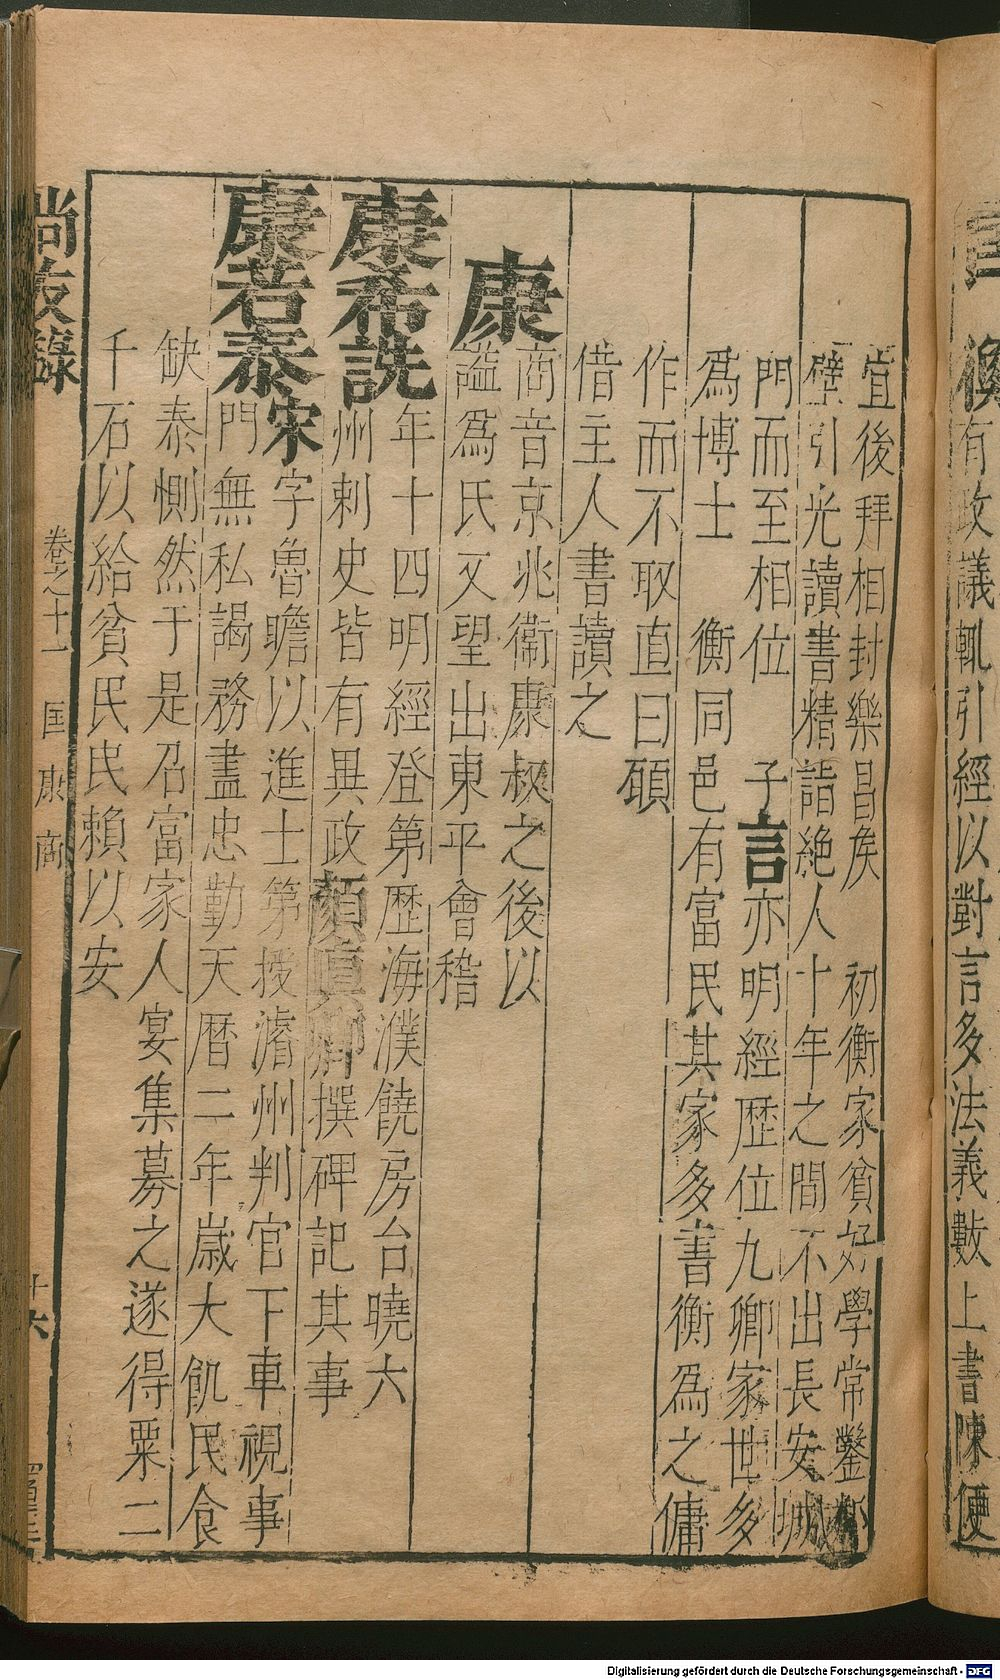 宜後拜相封樂昌矦　初衡家貧好學常鑿鄰
壁引光讀書精詣絶人十年之間不出長安城
門而至相位　子言亦明經歴位九卿家世多
爲博士　衡同邑有富民其家多書衡爲之傭
作而不取直曰碩
借主人書讀之
康
商音京兆衞康叔之後以
謚爲氏又望出東平會稽
康希詵
年十四明經登第歴海濮饒房台曉六
州剌史皆有異政顏真卿撰碑記其事
康若泰
宋字魯瞻以進士第授濬州判官下車視事
門無私謁務盡忠勤天曆二年嵗大飢民食
缺泰惻然于是召富家人宴集募之遂得粟二
千石以給貧民民賴以安
尚友錄
卷之十一
匡康商
十六
有政議輒引經以對言多法義數上書陳便
Digitalisierung gefördert durch die Deutsche Forschungsgemeinschaft - DFG